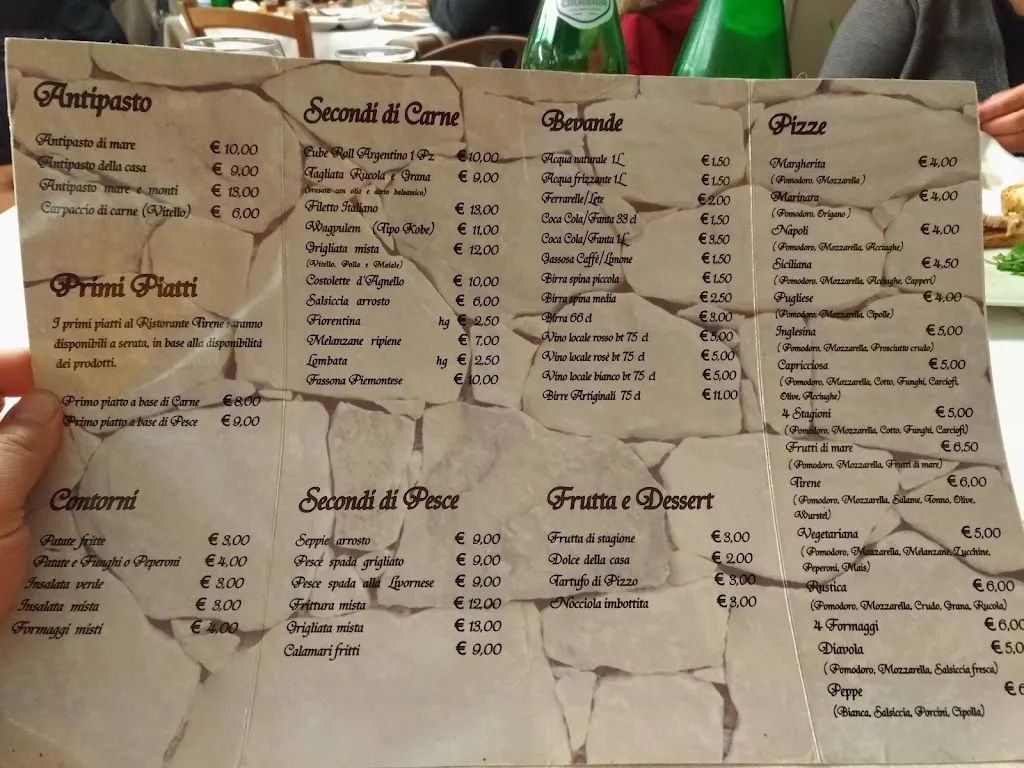 Antipasto
Antipasto di mare € 10,00
Antipasto della casa € 9,00
Antipasto mare e monti € 13,00
Carpaccio di carne (Vitello) € 6,00
Primi Piatti
I primi piatti al Ristorante Tirene saranno
disponibili a serata, in base alla disponibilità
dei prodotti.
Primo piatto a base di Carne € 8,00
Primo piatto a base di Pesce € 9,00
Contorni
Patate fritte € 3,00
Patate e Funghi o Peperoni € 4,00
Insalata verde € 3,00
Insalata mista € 3,00
Formaggi misti € 4,00
Secondi di Carne
Cube Roll Argentino 1 Pz € 10,00
Tagliata Rucola e Grana € 9,00
Filetto Italiano € 13,00
Wagyulem (Tipo Kobe) € 11,00
Grigliata mista € 12,00
(Vitello, Pollo e Maiale)
Costolette d'Agnello € 10,00
Salsiccia arrosto € 6,00
Fiorentina hg € 2,50
Melanzane ripiene € 7,00
Lombata hg € 2,50
Fassona Piemontese € 10,00
Secondi di Pesce
Seppie arrosto € 9,00
Pesce spada grigliato € 9,00
Pesce spada alla Livornese € 9,00
Frittura mista € 12,00
Grigliata mista € 13,00
Calamari fritti € 9,00
Bevande
Acqua naturale 1L € 1,50
Acqua frizzante 1L € 1,50
Ferrarelle/Lete € 2,00
Coca Cola/Fanta 33 cl € 1,50
Coca Cola/Fanta 1L € 3,50
Gassosa Caffè/Limone € 1,50
Birra spina piccola € 1,50
Birra spina media € 2,50
Birra 66 cl € 3,00
Vino locale rosso bt 75 cl € 5,00
Vino locale rosé bt 75 cl € 5,00
Vino locale bianco bt 75 cl € 5,00
Birre Artiginali 75 cl € 11,00
Frutta e Dessert
Frutta di stagione € 3,00
Dolce della casa € 2,00
Tartufo di Pizzo € 3,00
Nocciola imbottita € 3,00
Pizze
Margherita € 4,00
(Pomodoro, Mozzarella)
Marinara € 4,00
(Pomodoro, Origano)
Napoli € 4,00
(Pomodoro, Mozzarella, Acciughe)
Siciliana € 4,50
(Pomodoro, Mozzarella, Acciughe, Capperi)
Pugliese € 4,00
(Pomodoro, Mozzarella, Cipolle)
Inglesina € 5,00
(Pomodoro, Mozzarella, Prosciutto crudo)
Capricciosa € 5,00
(Pomodoro, Mozzarella, Cotto, Funghi, Carciofi,
Olive, Acciughe)
4 Stagioni € 5,00
(Pomodoro, Mozzarella, Cotto, Funghi, Carciofi)
Frutti di mare € 6,50
(Pomodoro, Mozzarella, Frutti di mare)
Tirene € 6,00
(Pomodoro, Mozzarella, Salame, Tonno, Olive,
Wurstel)
Vegetariana € 5,00
(Pomodoro, Mozzarella, Melanzane, Zucchine,
Peperoni, Mais)
Rustica € 6,00
(Pomodoro, Mozzarella, Crudo, Grana, Rucola)
4 Formaggi € 6,00
Diavola € 5,0
(Pomodoro, Mozzarella, Salsiccia fresca)
Peppe € 6
(Bianca, Salsiccia, Porcini, Cipolla)